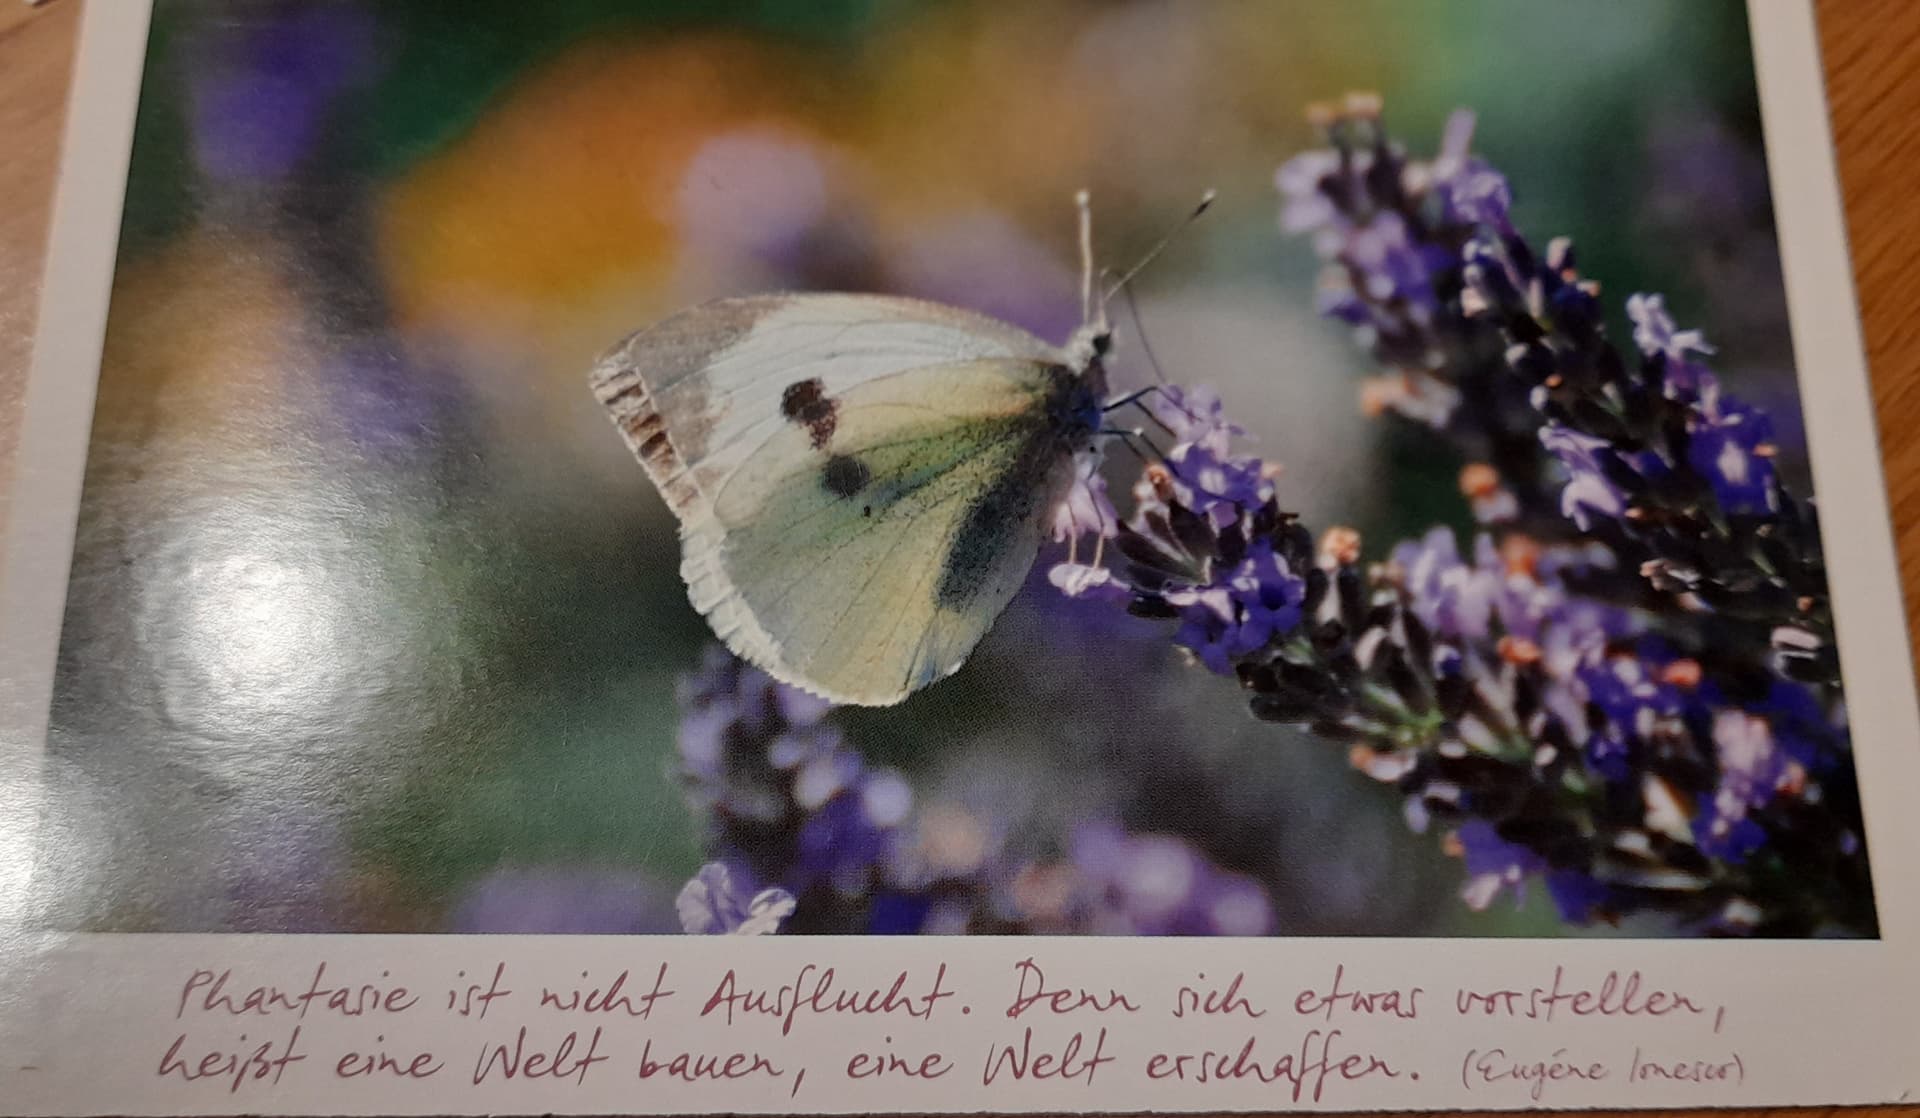 Phantasie ist nicht Ausflucht. Denn sich etwas vorstellen,
heißt eine Welt bauen, eine Welt erschaffen. (Eugéne Ionesco)